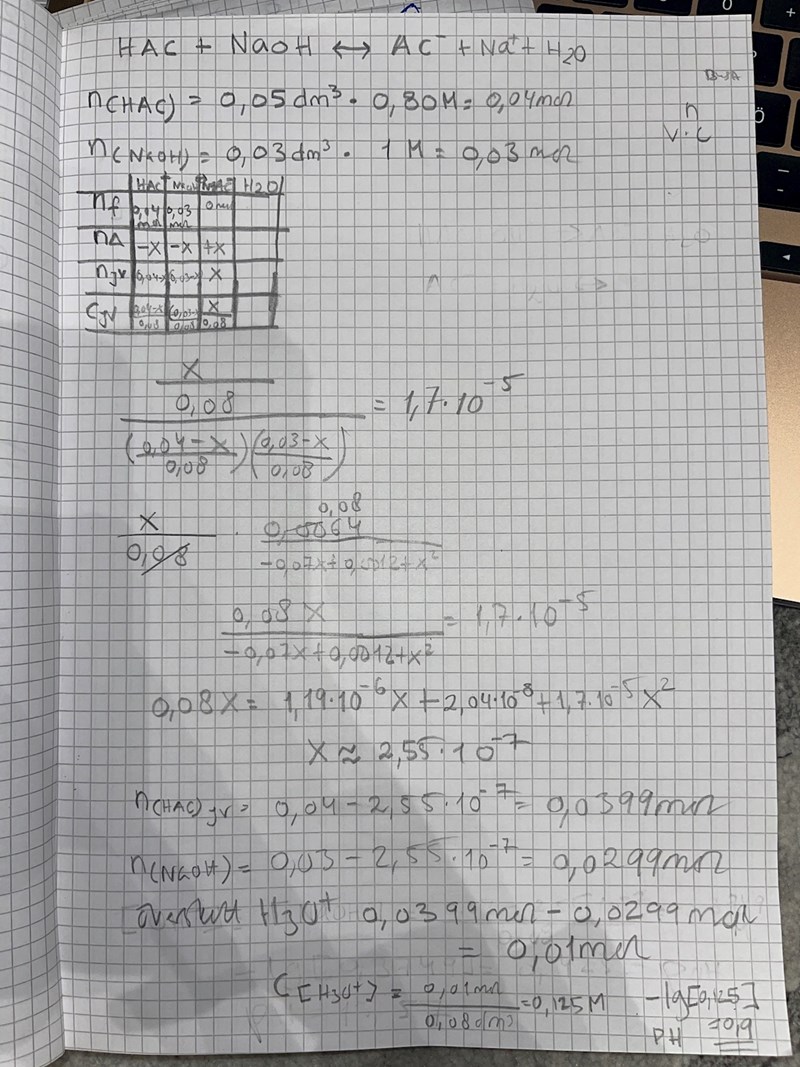 HAC + NaOH ↔ AC⁻ + Na⁺ + H2O
n(HAC) = 0,05 dm³ · 0,80M = 0,04mol
n
V·C
n(NaOH) = 0,03dm³ · 1 M = 0,03 mol
HAC NaOH NaAC H2O
nf 0,04 mol 0,03 mol 0 mol
nΔ -x -x +x
njv 0,04-x 0,03-x x
Cjv 0,04-x/0,08 0,03-x/0,08 x/0,08
x
0,08
= 1,7·10⁻⁵
(0,04-x/0,08)(0,03-x/0,08)
0,08
x/0,08 · 0,0064/-0,07x+0,0012+x²
0,08x/-0,07x+0,0012+x² = 1,7·10⁻⁵
0,08x = 1,19·10⁻⁶x + 2,04·10⁻⁸ + 1,7·10⁻⁵x²
x ≈ 2,55·10⁻⁷
n(HAC)jv = 0,04 - 2,55·10⁻⁷ = 0,0399mol
n(NaOH) = 0,03 - 2,55·10⁻⁷ = 0,0299mol
överskott H3O⁺ 0,0399mol - 0,0299mol
= 0,01mol
C[H3O⁺] = 0,01mol/0,08dm³ = 0,125M -lg[0,125]
PH = 0,9